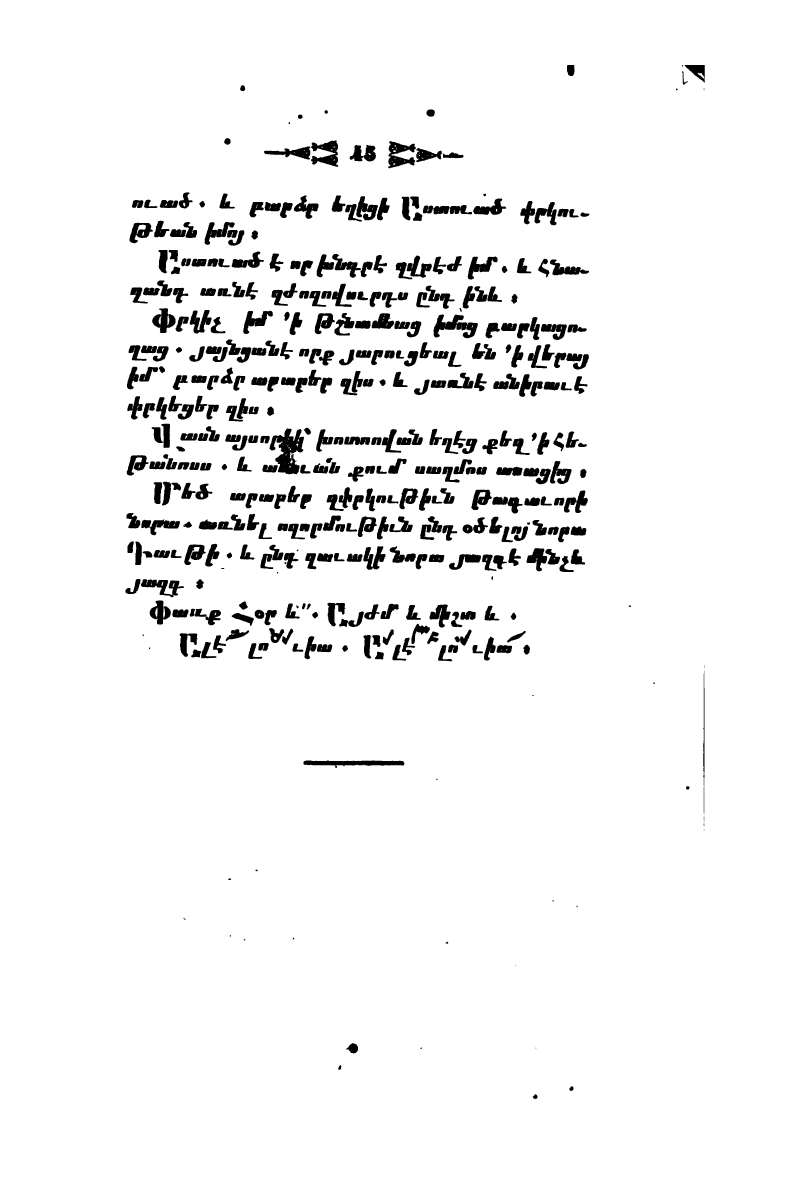 45
ուած. և բարձր եղիցի Աստուած փրկու-
թեան իմոյ։
Աստուած է որ խնդրէ զվրէժ իմ. և Հնա-
զանդ առնէ զժողովուրդս ընդ ինև։
Փրկիչ իմ ՚ի թշնամեաց իմոց բարկացո-
ղաց. յայնցանէ որք յարուցեալ են ՚ի վերայ
իմ՝ բարձր արարեր զիս. և յառնէ անիրաւէ
փրկեցեր զիս։
Վասն այսորիկ՝ խոստովան եղէց քեզ ՚ի Հե-
թանոսս. և անուան քում սաղմոս առացից։
Մեծ արարեր զփրկութիւն թագաւորի
նորա. առնել ողորմութիւն ընդ օծելոյ նորա
Դաւթի. և ընդ զաւակի նորա յազգէ մինչև
յազգ։
Փառք Հօր և՛՛. Այժմ և միշտ և.
Ալէլուիա. Ալէլուիա։